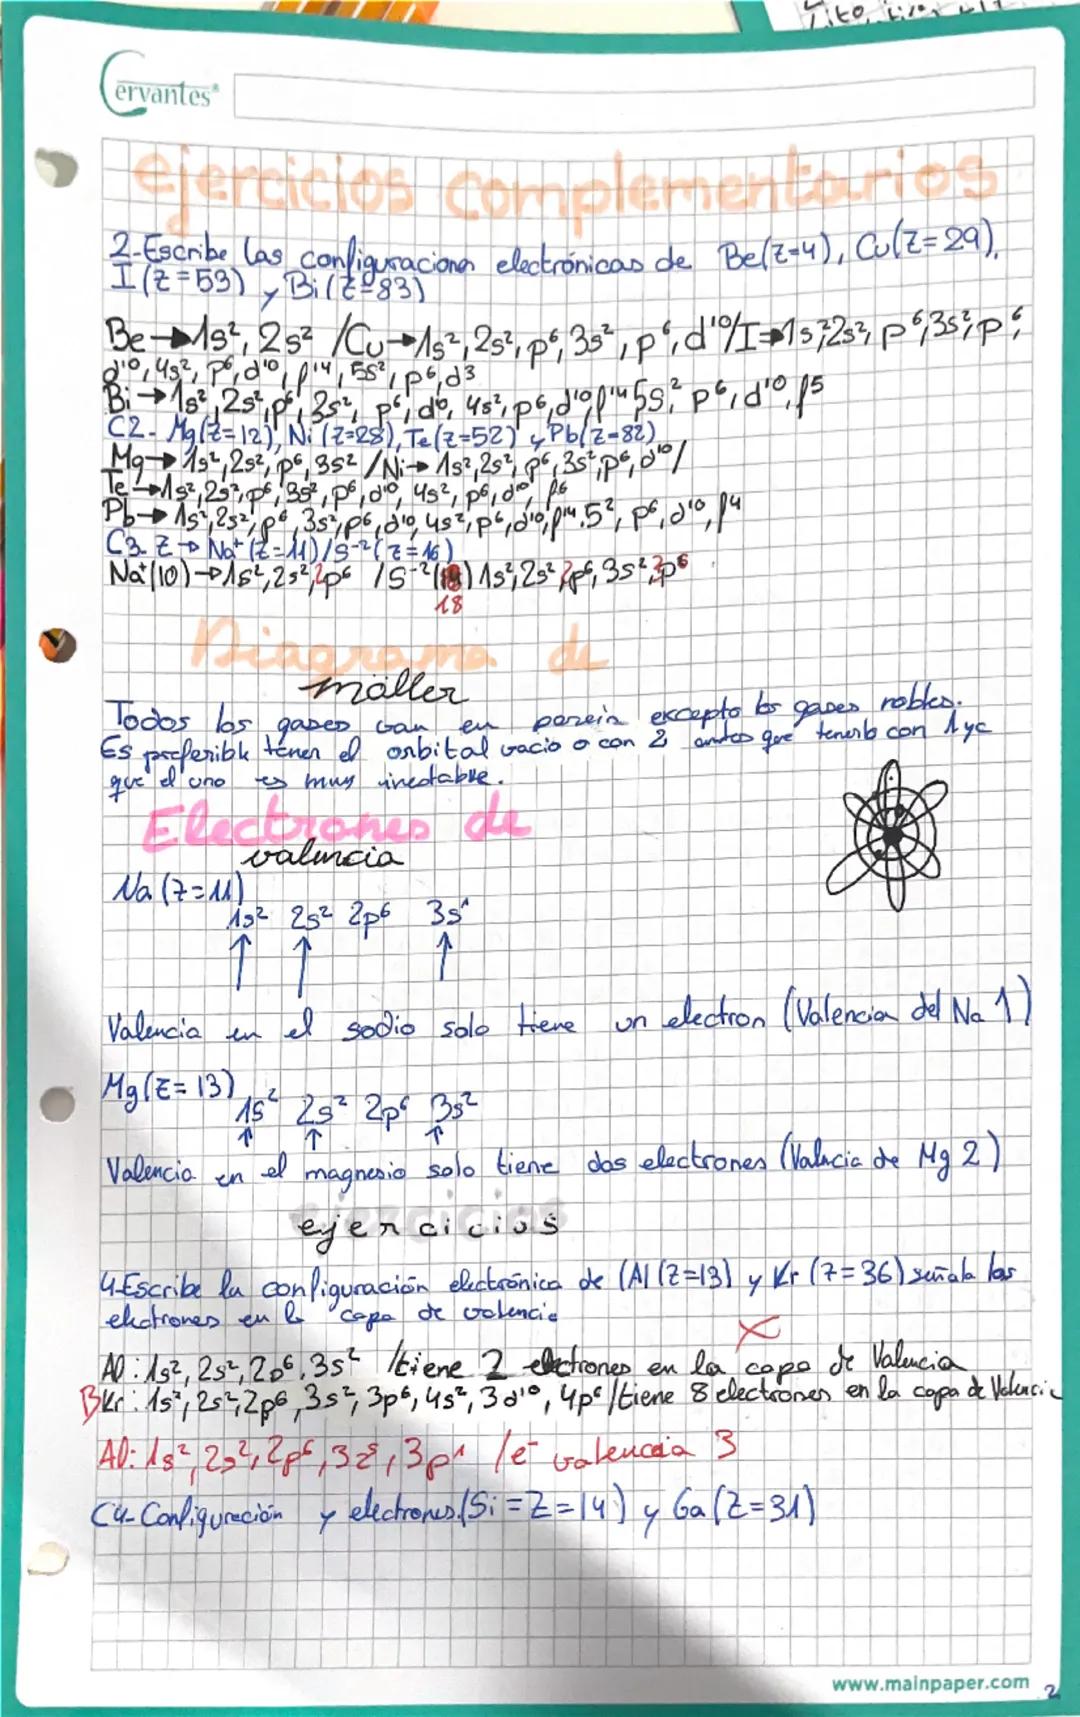 Cervantes
ejercicios complementarios
2-Escribe las configuraciones electrónicas de Be(Z=4), Cu(Z=29),
I(Z=53) y Bi(Z=83)
Be→1s², 2s² /Cu→1s², 2s², p⁶, 3s², p⁶, d¹⁰/I→1s², 2s², p⁶, 3s², p⁶,
d¹⁰, 4s², p⁶, d¹⁰, f¹⁴, 5s², p⁶, d³
Bi→1s², 2s², p⁶, 3s², p⁶, d¹⁰, 4s², p⁶, d¹⁰, f¹⁴ 5s², p⁶, d¹⁰, f⁵
C2- Mg(Z=12), Ni(Z=28), Te(Z=52) y Pb(Z=82)
Mg→1s², 2s², p⁶, 3s² /Ni→1s², 2s², p⁶, 3s², p⁶, d¹⁰/
Te→1s², 2s², p⁶, 3s², p⁶, d¹⁰, 4s², p⁶, d¹⁰, f⁶
Pb→1s², 2s², p⁶, 3s², p⁶, d¹⁰, 4s², p⁶, d¹⁰, f¹⁴, 5², p⁶, d¹⁰, f⁴
C3- Z→Na⁺(Z=11)/S⁻²(Z=16)
Na⁺(10)→1s², 2s², 2p⁶ /S⁻²() 1s², 2s² 2p⁶, 3s² 3p⁶
18
Diagrama de
möller
Todos los gases van en pareja excepto los gases nobles.
Es preferible tener el orbital vacio o con 2 antes que tenerlo con 1 ya
que el uno es muy inestable.
Electrones de
valencia
Na (Z=11)
1s² 2s² 2p⁶ 3s¹
Valencia en el sodio solo tiene un electron (Valencia del Na 1)
Mg(Z=13)
1s² 2s² 2p⁶ 3s²
Valencia en el magnesio solo tiene dos electrones (Valncia de Mg 2)
ejercicios
4-Escribe la configuración electrónica de (Al(Z=13) y Kr (Z=36) señala los
electrones en la capa de valencia
Al: 1s², 2s², 2p⁶, 3s² /tiene 2 electrones en la capa de Valencia
B Kr: 1s², 2s², 2p⁶, 3s², 3p⁶, 4s², 3d¹⁰, 4p⁶ /tiene 8 electrones en la capa de Valencia
Al: 1s², 2s², 2p⁶, 3s², 3p¹ /e⁻ valencia 3
C4- Configuración y electrones (Si=Z=14) y Ga(Z=31)
www.mainpaper.com
2